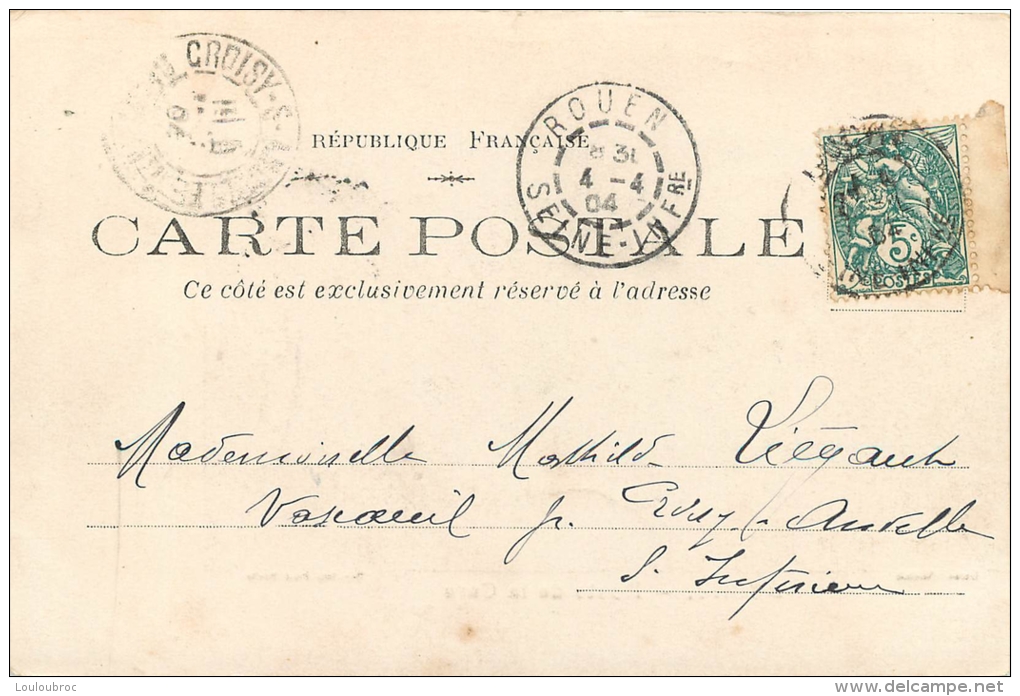 CROISY-S
RÉPUBLIQUE FRANÇAISE
ROUEN
8 31
4 - 4
04
SEINE-INFRE
CARTE POSTALE
Ce côté est exclusivement réservé à l'adresse
5c
POSTES
04
Mademoiselle Mathilde
Vascoeuil pr. Croisy s/ Andelle
S. Inférieure
Louloubroc
www.delcampe.net